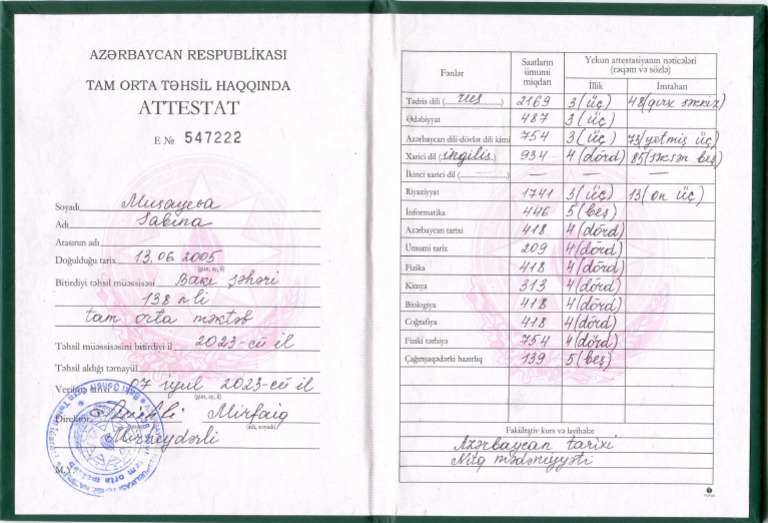 AZƏRBAYCAN RESPUBLİKASI
TAM ORTA TƏHSİL HAQQINDA
ATTESTAT
E № 547222
Soyadı Musayeva
Adı Sabina
Atasının adı
Doğulduğu tarix 13.06 2005
(gün, ay, il)
Bitirdiyi təhsil müəssisəsi Bakı şəhəri
138 n-li
tam orta məktəb
Təhsil müəssisəsini bitirdiyi il 2023-cü il
Təhsil aldığı təmayül
Verilmə tarixi 07 iyul 2023-cü il
(gün, ay, il)
Direktor Mirfaig
(adı, soyadı)
Mirheydərli
M.Y.
Fənlər Saatların ümumi miqdarı Yekun attestasiyanın nəticələri (rəqəm və sözlə)
İllik İmtahan
Tədris dili (rus) 2169 3 (üç) 48 (qırx səkkiz)
Ədəbiyyat 487 3 (üç)
Azərbaycan dili-dövlət dili kimi 754 3 (üç) 73 (yetmiş üç)
Xarici dil (ingilis) 934 4 (dörd) 85 (səksən beş)
İkinci xarici dil (....................) — — —
Riyaziyyat 1741 3 (üç) 13 (on üç)
İnformatika 446 5 (beş)
Azərbaycan tarixi 418 4 (dörd)
Ümumi tarix 209 4 (dörd)
Fizika 418 4 (dörd)
Kimya 313 4 (dörd)
Biologiya 418 4 (dörd)
Coğrafiya 418 4 (dörd)
Fiziki tərbiyə 754 4 (dörd)
Çağırışaqədərki hazırlıq 139 5 (beş)
Fakültativ kurs və layihələr
Azərbaycan tarixi
Nitq mədəniyyəti